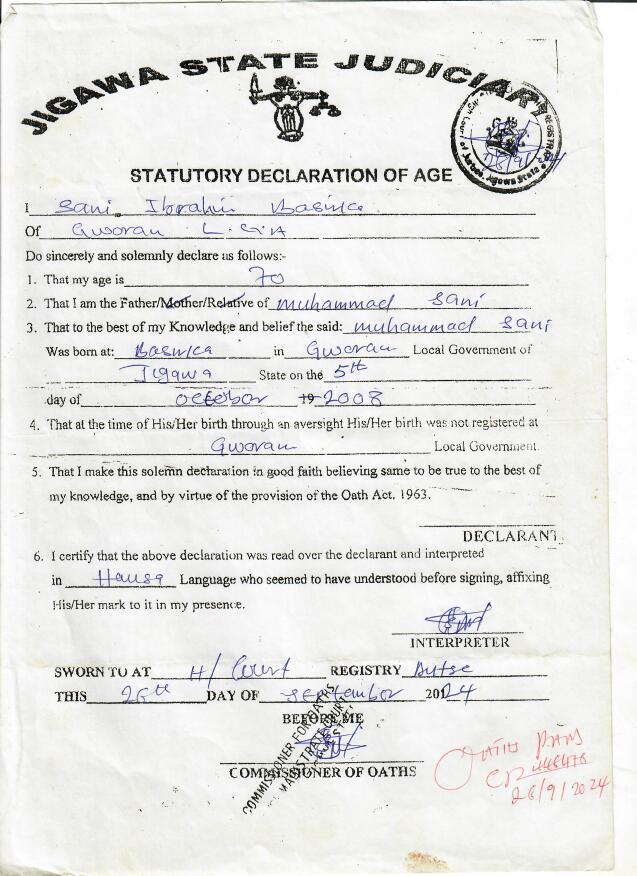 JIGAWA STATE JUDICIARY
STATUTORY DECLARATION OF AGE
I Sani Ibrahim Basirka
Of Gwaram L.G.A
Do sincerely and solemnly declare as follows:-
1. That my age is 70
2. That I am the Father/Mother/Relative of muhammad Sani
3. That to the best of my Knowledge and belief the said: muhammad Sani
Was born at: Basirka in Gwaram Local Government of
Jigawa State on the 5th
day of October 19 2008
4. That at the time of His/Her birth through an aversight His/Her birth was not registered at
Gwaram Local Government.
5. That I make this solemn declaration in good faith believing same to be true to the best of
my knowledge, and by virtue of the provision of the Oath Act, 1963.
DECLARANT
6. I certify that the above declaration was read over the declarant and interpreted
in Hausa Language who seemed to have understood before signing, affixing
His/Her mark to it in my presence.
INTERPRETER
SWORN TO AT H/Court REGISTRY Dutse
THIS 26th DAY OF September 2024
BEFORE ME
COMMISSIONER FOR OATHS
COMMISSIONER OF OATHS
Oaths
CR
26/9/2024